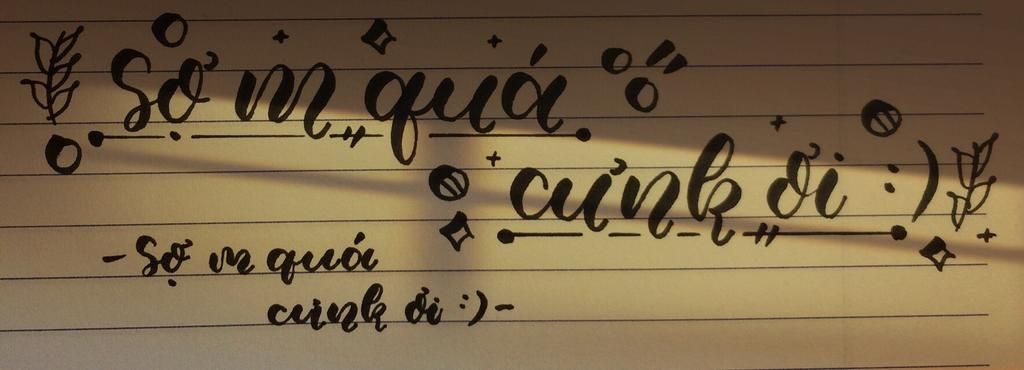 Sợ m quá
cưnk ơi :)
- Sợ m quá
cưnk ơi :) -